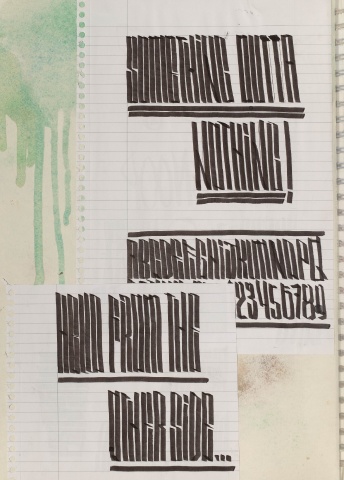 SOMETHING OUTTA
NOTHING!
ABCDEFGHIJKLMNOPQ
123456789
FROM THE
OTHER SIDE...